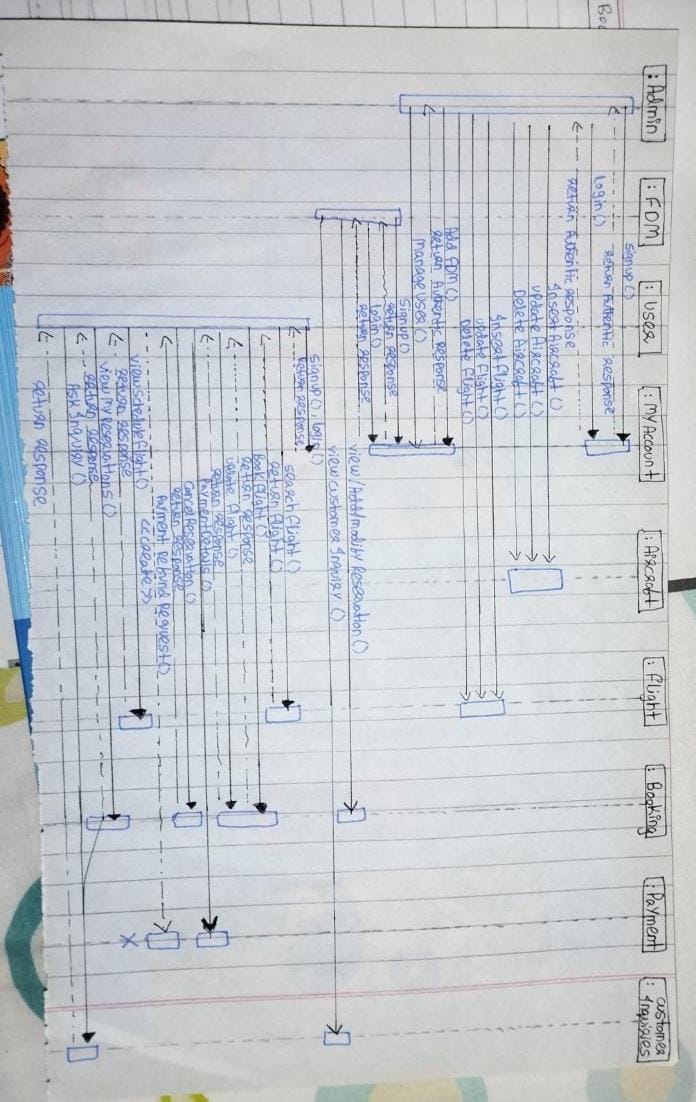 Boo
: Admin
: FDM
: User
: MyAccount
: Aircraft
: Flight
: Booking
: Payment
: customer
Inquiries
signup()
return Authentic Response
Login()
return Authentic Response
Insert Aircraft()
update Aircraft()
Delete Aircraft()
Insert flight()
update flight()
Delete flight()
Add FDM()
return Authentic Response
manage user()
signup()
return Response
login()
return Response
view/Add/modify Reservation()
view customer Inquiry ()
signup(), login()
return response
search flight()
return flight()
Book flight()
return Response
update flight()
return Response
Payment Details()
cancel Reservation()
return Response
Payment Refund Request()
<<create>>
view schedule flight()
return Response
view My reservations()
return response
Ask Inquiry()
return response
X